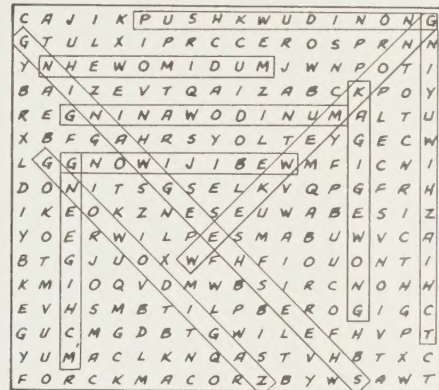 C A J I K P U S H K W U D I N O N G
G T U L X I P R C C E R O S P R N N
Y N H E W O M I D U M J W N P O T I
B A I Z E V T Q A I Z A B C K P O Y
R E G N I N A W O D I N U M A L T U
X B F G A H R S Y O L T E Y G E C W
L G G N O W I J I B E W M F I C N I
D O N I T S G S E L K V Q P G F R H
I K E O K Z N E S E U W A B E S I Z
Y O E R W I L P E S M A B U W V C A
B T G J U O X W F H F I O U O N T I
K M I O Q V D M W B S I R C N O H H
E V H S M B T I L P B E R O G I G C
G U C M G D B T G W I L E F H V P T
Y U M A C L K N Q A S T V H B T X C
F O R C K M A C O R Z B Y W S A W T